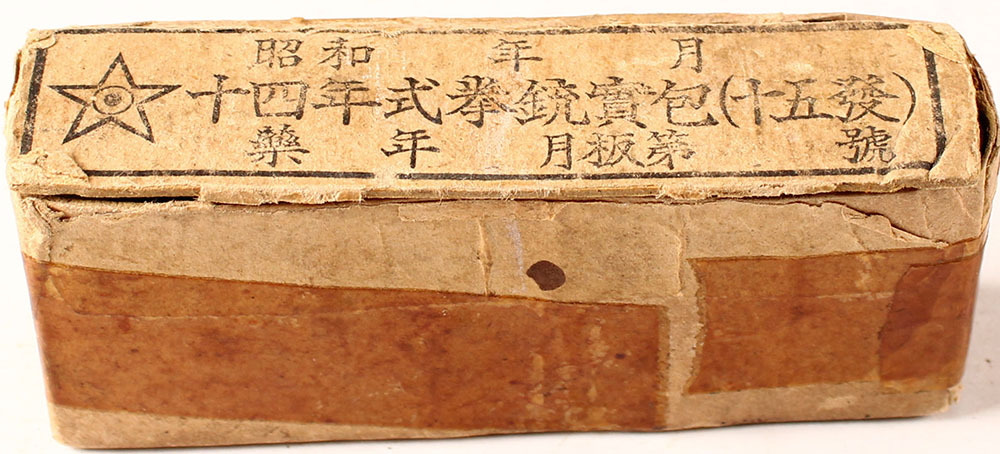 昭和 年 月
十四年式拳銃實包(十五發)
藥 年 月板第 號